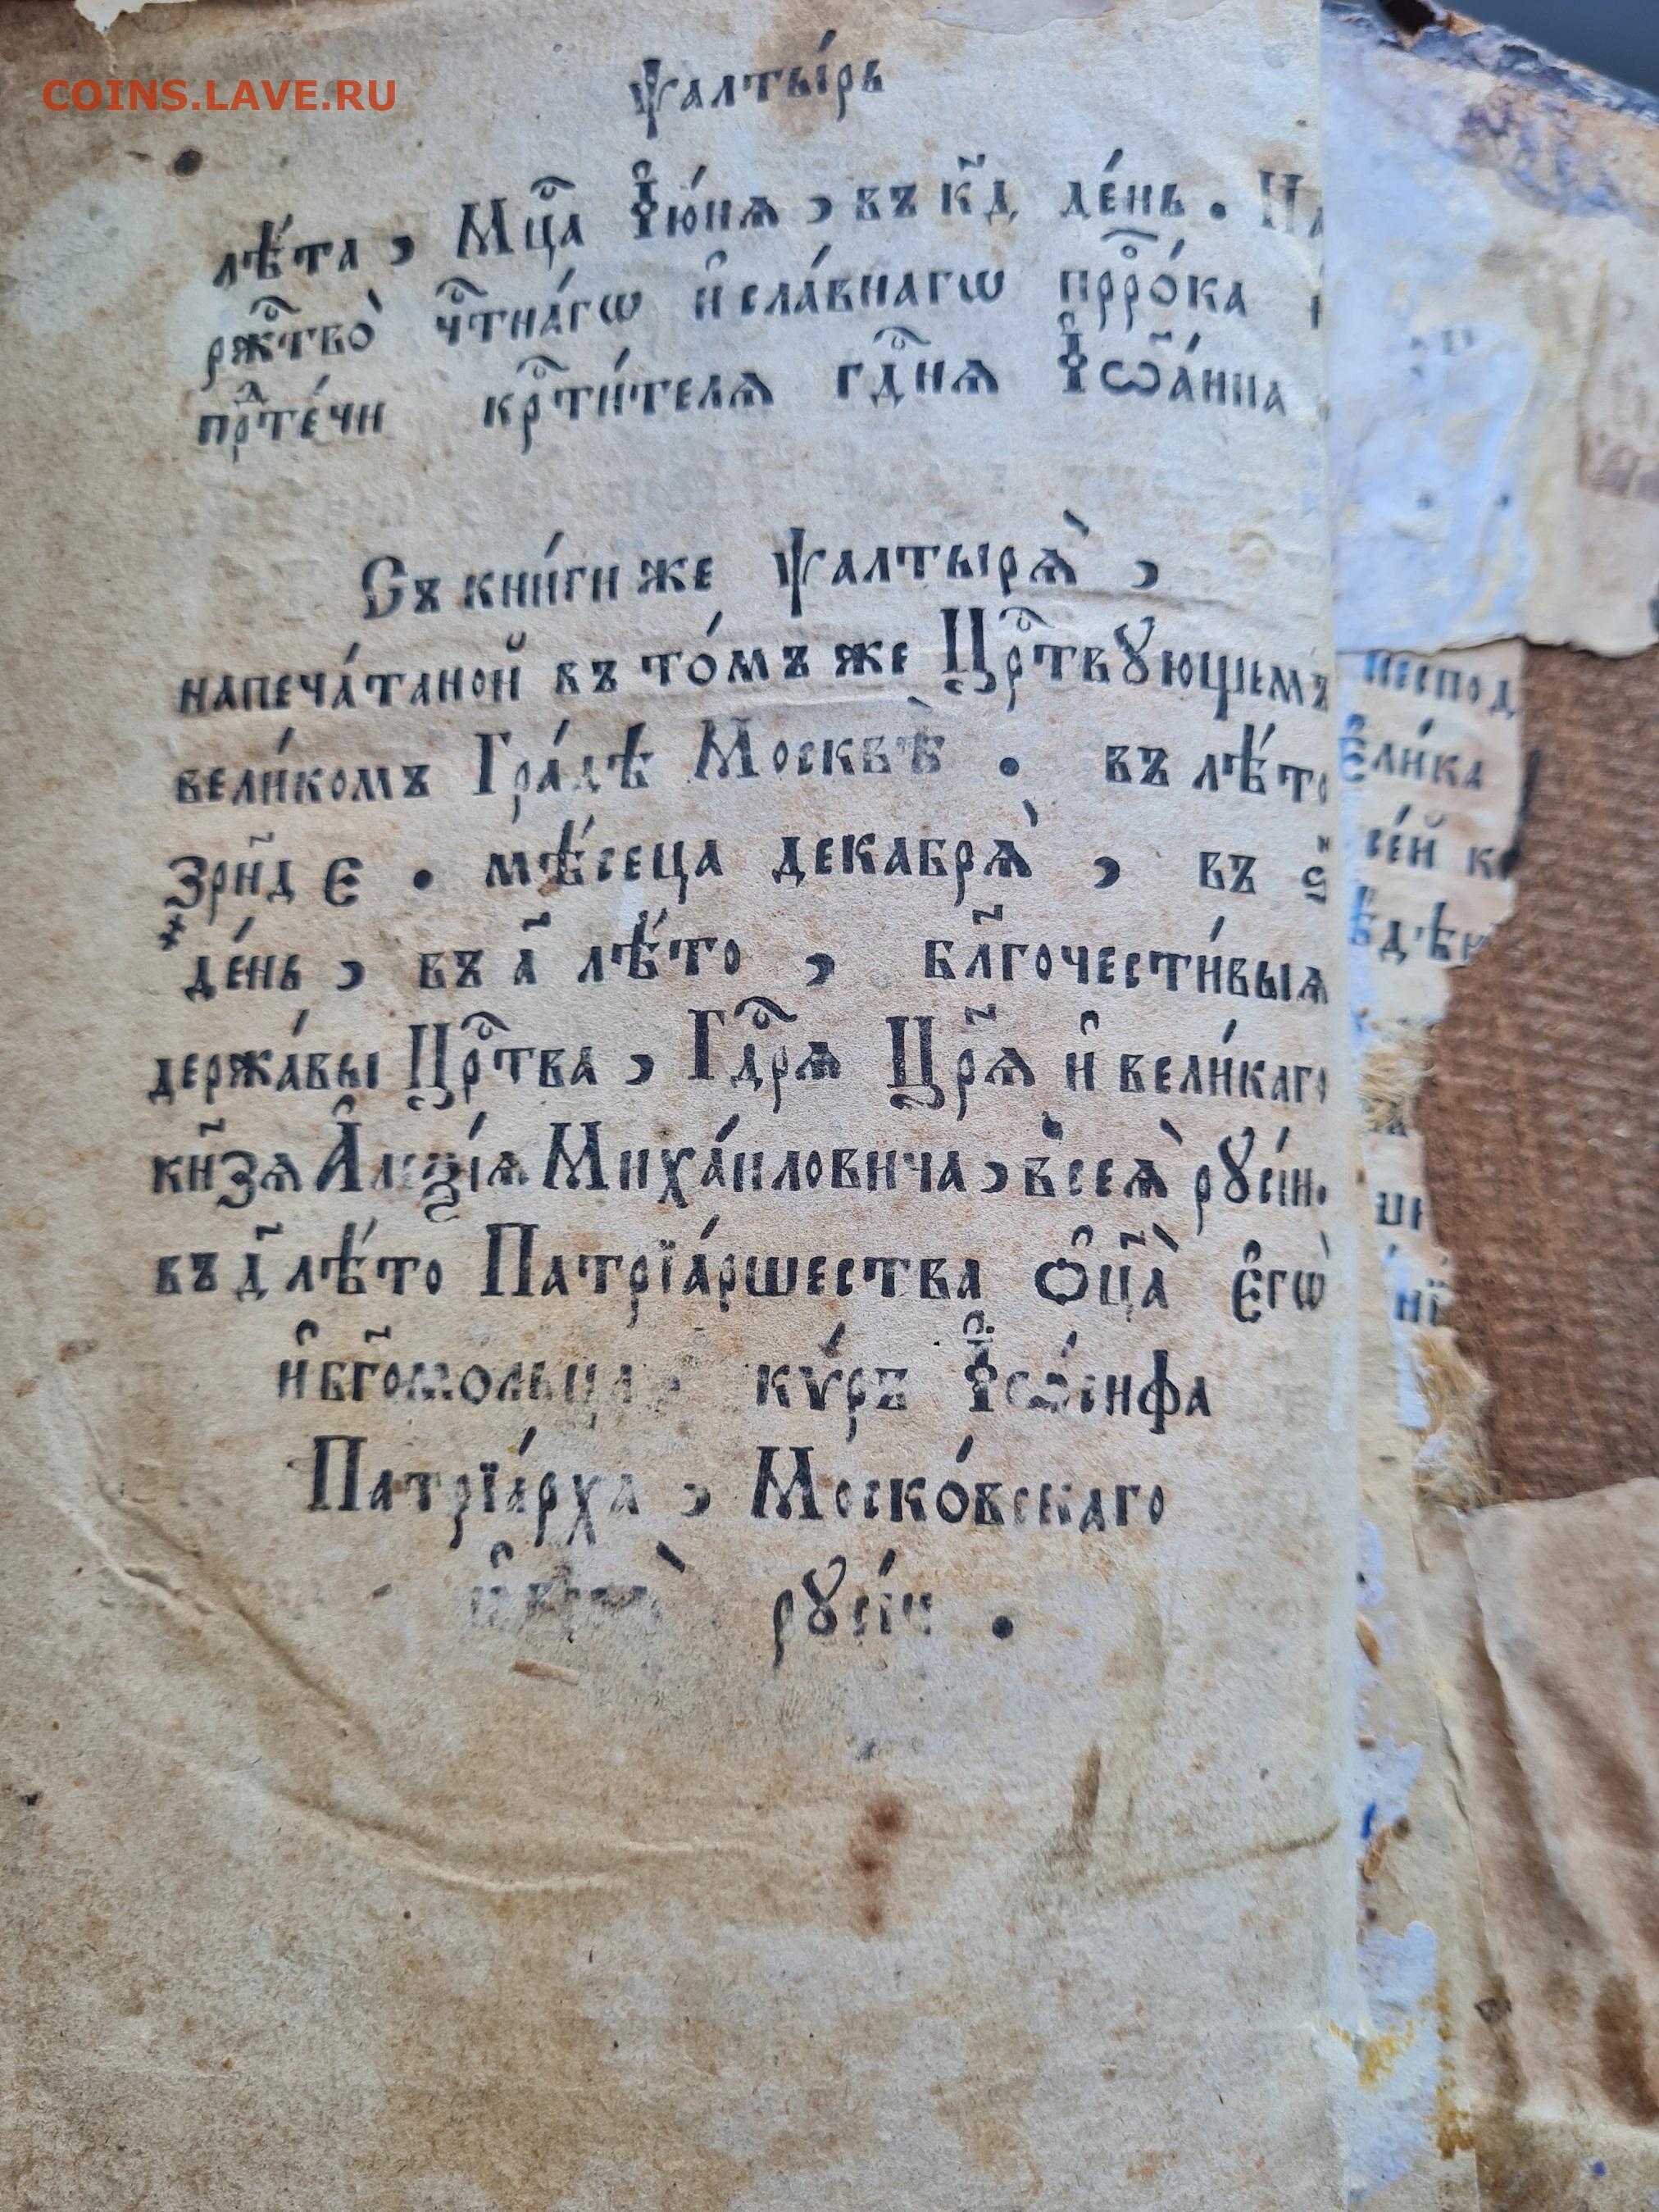 COINS.LAVE.RU
Ѱалты́рь
лѣ́та , Мц҃а І҆ю́нѧ , въ к҃д де́нь . На
рж҃тво̀ чⷭ҇тна́гѡ и҆сла́внагѡ прⷪ҇ро́ка
прⷣте́чи крⷭ҇ти́телѧ гдⷭ҇нѧ І҆ѡ҃а́нна
Съ кни́ги же ѱалтырѧ̀ ,
напеча́таной въ то́мъ же Црⷭ҇твꙋющіемъ
вели́комъ Гра́дѣ Москвѣ̀ . въ лѣ́то
҂зрн҃д є . мѣ́сеца декабрѧ̀ , въ ѕ҃
де́нь , въ а҃ лѣ́то , бл҃гочести́выѧ
держа́вы Црⷭ҇тва , Гдⷭ҇рѧ Цр҃ѧ и҆ вели́каго
кн҃зѧ А҆леѯі́ѧ Миха́иловича , всеѧ̀ рꙋсі́и .
въ д҃ лѣ́то Патрїа́ршества Ѻ҆ц҃а̀ є҆гѡ̀
и҆ бг҃омольца , кѵ́ръ І҆ѡ́сифа
Патрїа́рха , Моско́вскаго
рꙋсі́и .
не́спод
є҆ли́ка
се́й